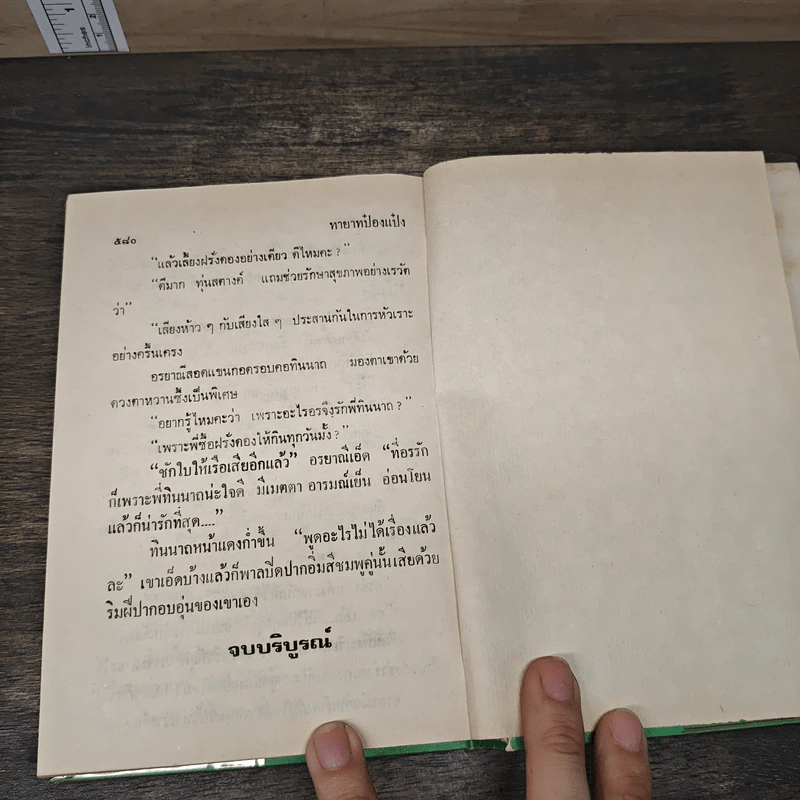 1
2
inches
๕๘๐
ทายาทป๋องแป๋ง
“แล้วเลี้ยงฝรั่งดองอย่างเดียว ดีไหมคะ ?”
“ดีมาก ทุ่นสตางค์ แถมช่วยรักษาสุขภาพอย่างเรวัต
ว่า”
“เสียงห้าว ๆ กับเสียงใส ๆ ประสานกันในการหัวเราะ
อย่างครื้นเครง
อรยาณีสอดแขนกอดรอบคอทินนาถ มองตาเขาด้วย
ดวงตาหวานซึ้งเป็นพิเศษ
“อยากรู้ไหมคะว่า เพราะอะไรอรจึงรักพี่ทินนาถ ?”
“เพราะพี่ซื้อฝรั่งดองให้กินทุกวันมั้ง ?”
“ชักใบให้เรือเสียอีกแล้ว” อรยาณีเอ็ด “ที่อรรัก
ก็เพราะพี่ทินนาถน่ะใจดี มีเมตตา อารมณ์เย็น อ่อนโยน
แล้วก็น่ารักที่สุด....”
ทินนาถหน้าแดงก่ำขึ้น “พูดอะไรไม่ได้เรื่องแล้ว
ละ” เขาเอ็ดบ้างแล้วก็พาลปิดปากอิ่มสีชมพูคู่นั้นเสียด้วย
ริมฝีปากอบอุ่นของเขาเอง
จบบริบูรณ์